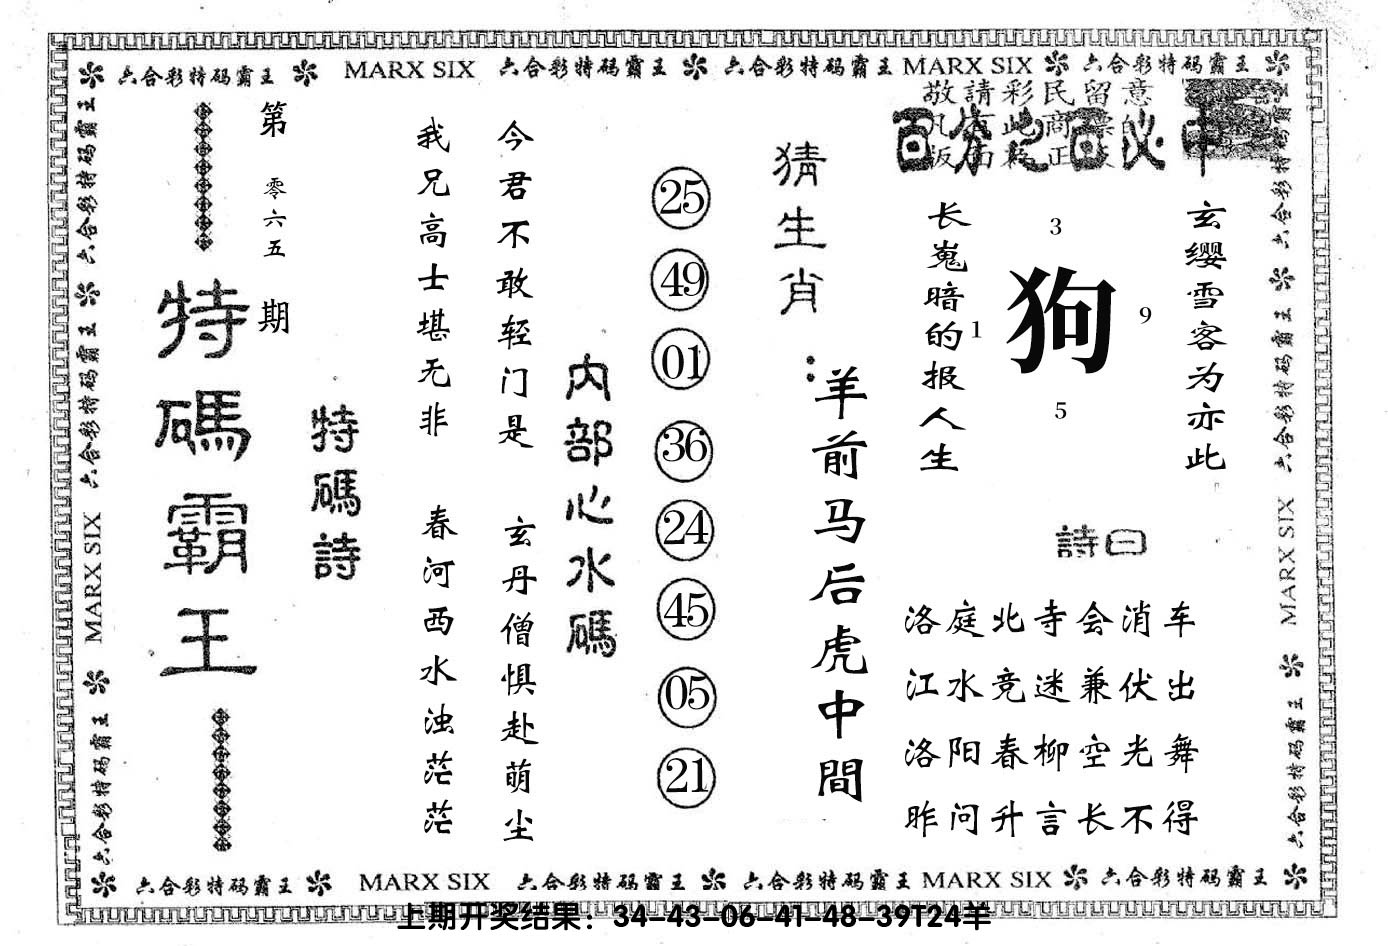 六合彩特码霸王 MARX SIX 六合彩特码霸王 六合彩特码霸王 MARX SIX 六合彩特码霸王
敬請彩民留意
百分之百必中
玄缨雪客为亦此
长嵬暗的报人生
3
1
狗
9
5
詩曰
洛庭北寺会消车
江水竞迷兼伏出
洛阳春柳空光舞
昨问升言长不得
猜生肖：
羊前马后虎中間
25
49
01
36
24
45
05
21
内部心水碼
今君不敢轻门是
玄丹僧惧赴萌尘
我兄高士堪无非
春河西水浊茫茫
特碼詩
第零六五期
特碼霸王
六合彩特码霸王 六合彩特码霸王 MARX SIX 六合彩特码霸王
六合彩特码霸王 六合彩特码霸王 MARX SIX 六合彩特码霸王
六合彩特码霸王 MARX SIX 六合彩特码霸王 六合彩特码霸王 MARX SIX 六合彩特码霸王
上期开奖结果：34-43-06-41-48-39T24羊